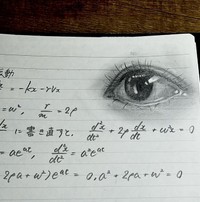 振動
= -kx - rvx
= ω², r/m = 2ρ
に書き直すと, d²x/dt² + 2ρ dx/dt + ω²x = 0
= ae^{at}, d²x/dt² = a²e^{at}
+ 2ρa + ω²) e^{at} = 0, a² + 2ρa + ω² = 0